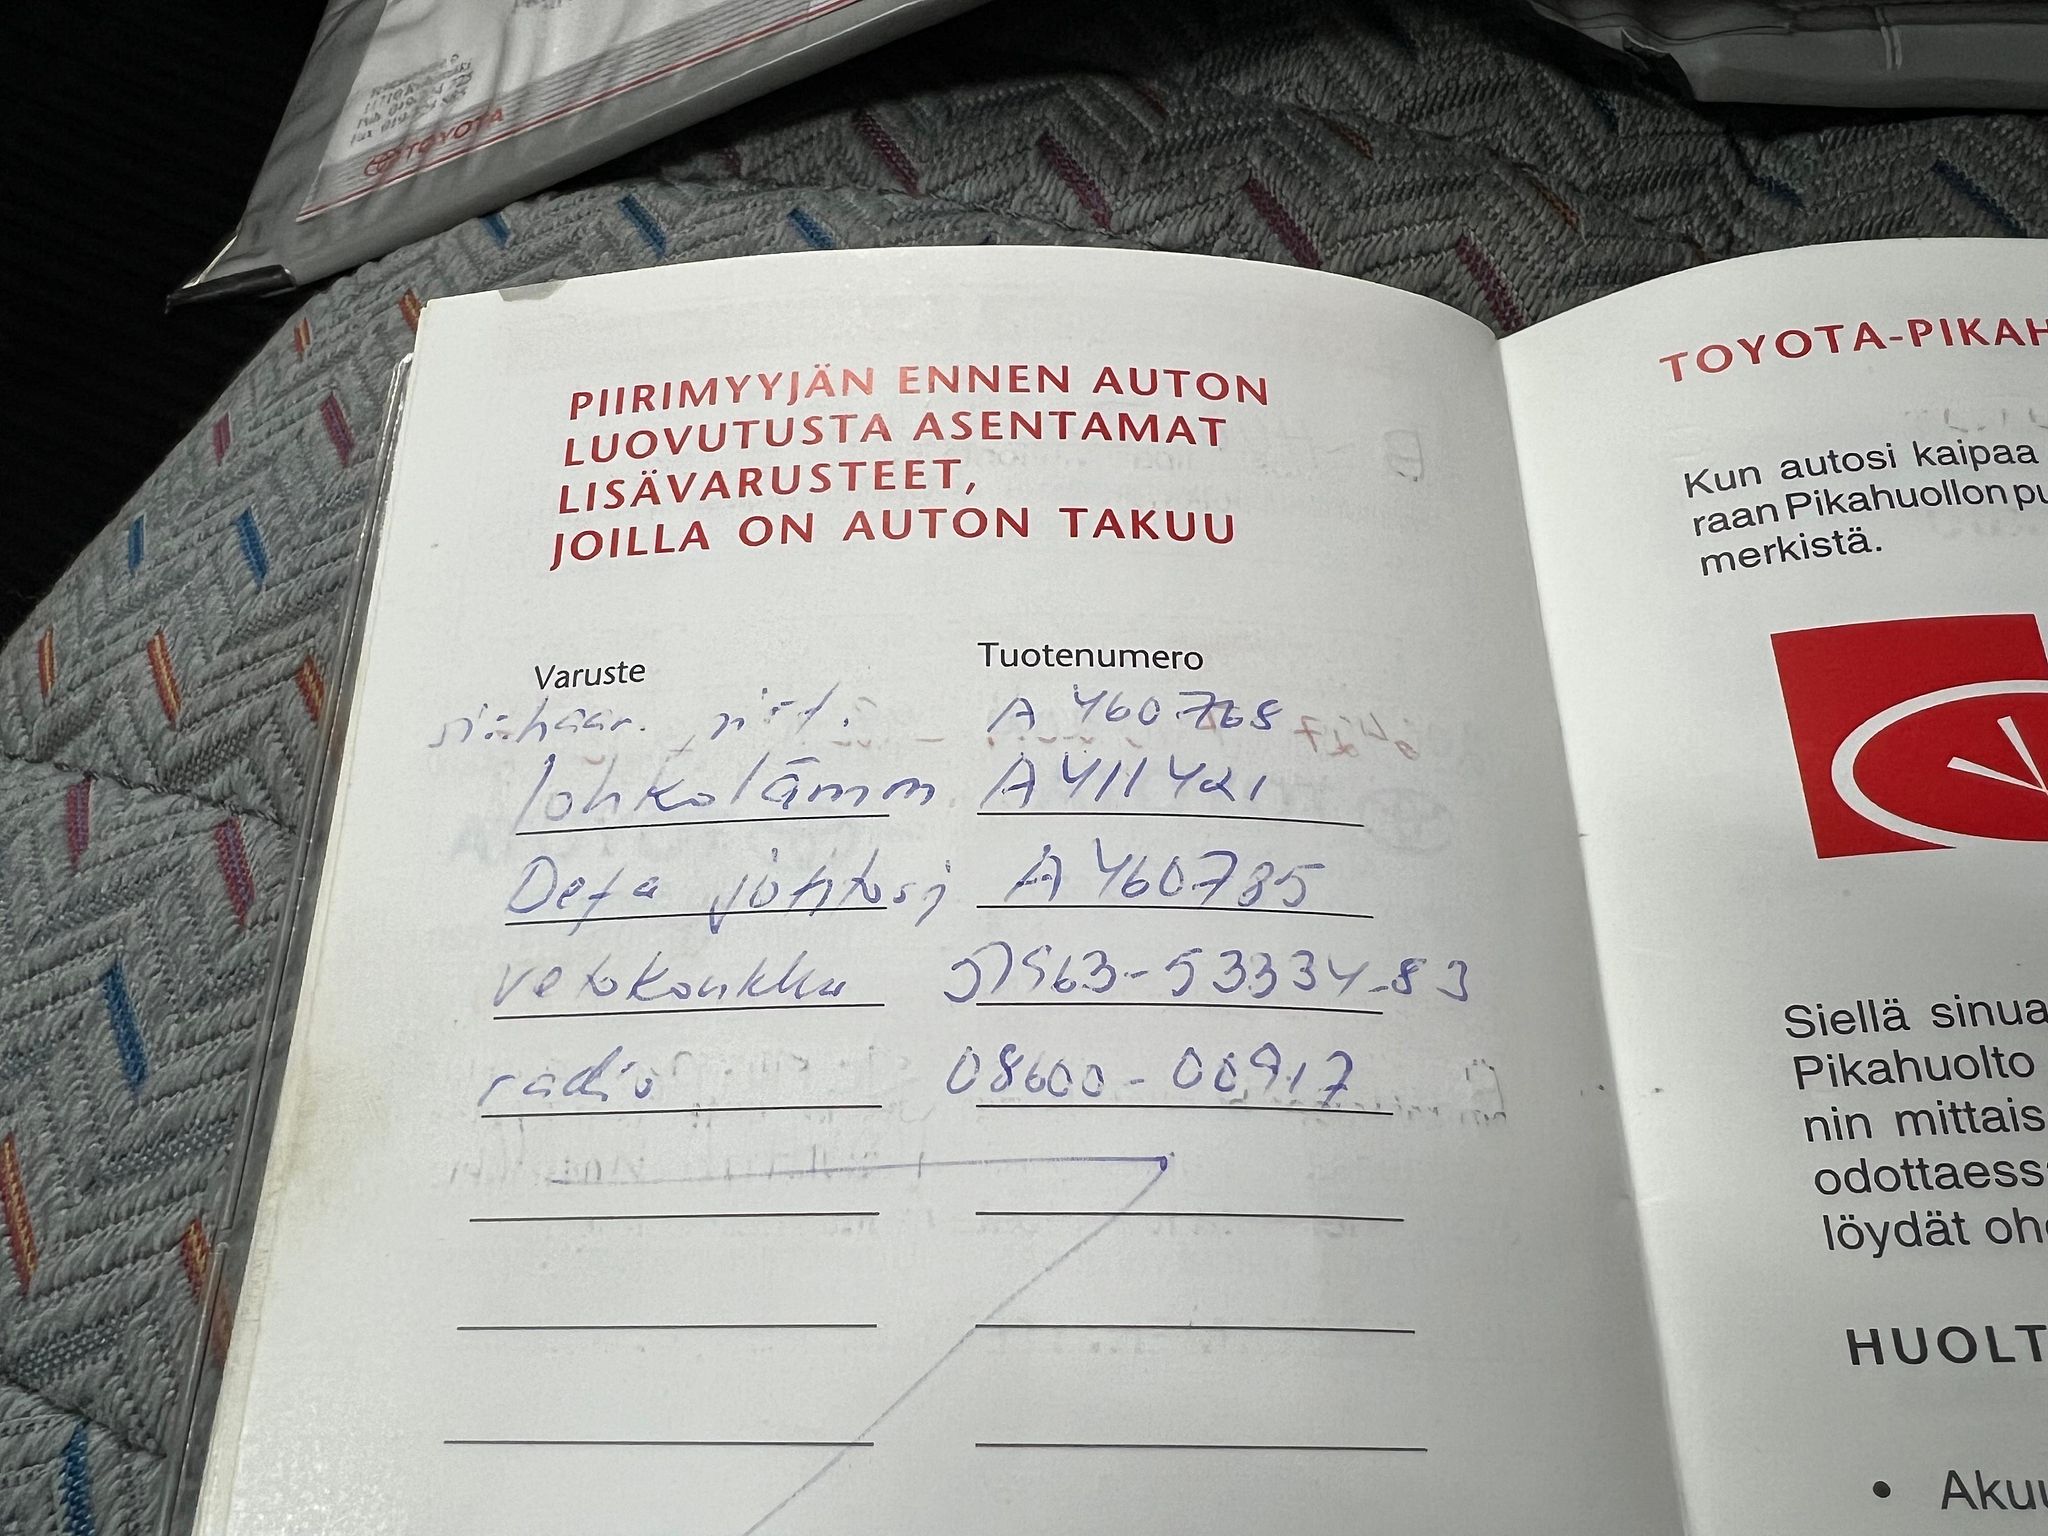 TOYOTA
PIIRIMYYJÄN ENNEN AUTON
LUOVUTUSTA ASENTAMAT
LISÄVARUSTEET,
JOILLA ON AUTON TAKUU
Varuste Tuotenumero
A 460768
lohkolämm. A 411421
Defa johtosj A 460785
vetokoukku 57963-53334-83
radio 08600-00917
TOYOTA-PIKAH
Kun autosi kaipaa
raan Pikahuollon pu
merkistä.
Siellä sinua
Pikahuolto
nin mittais
odottaess
löydät oh
HUOLT
• Akuu